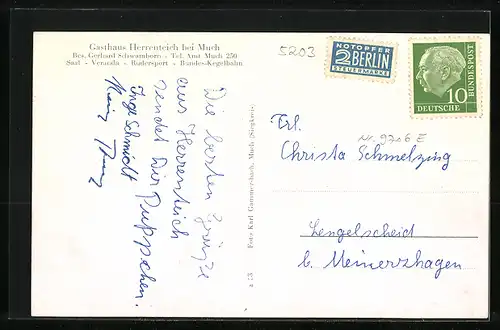 Gasthaus Herrenteich bei Much
Bes. Gerhard Schwamborn - Tel. Amt Much 250
Saal - Veranda - Rudersport - Bundes-Kegelbahn
5203
NOTOPFER
2 BERLIN
STEUERMARKE
DEUTSCHE
BUNDESPOST
10
Die besten Grüße
aus Herrenteich
sendet Dir Puppchen.
Inge Schmidt
Heinz
a 53 Foto Karl Gammersbach, Much (Siegkreis)
Nr. 9706 E
Frl.
Christa Schmelzing
Lengelscheid
b. Meinerzhagen